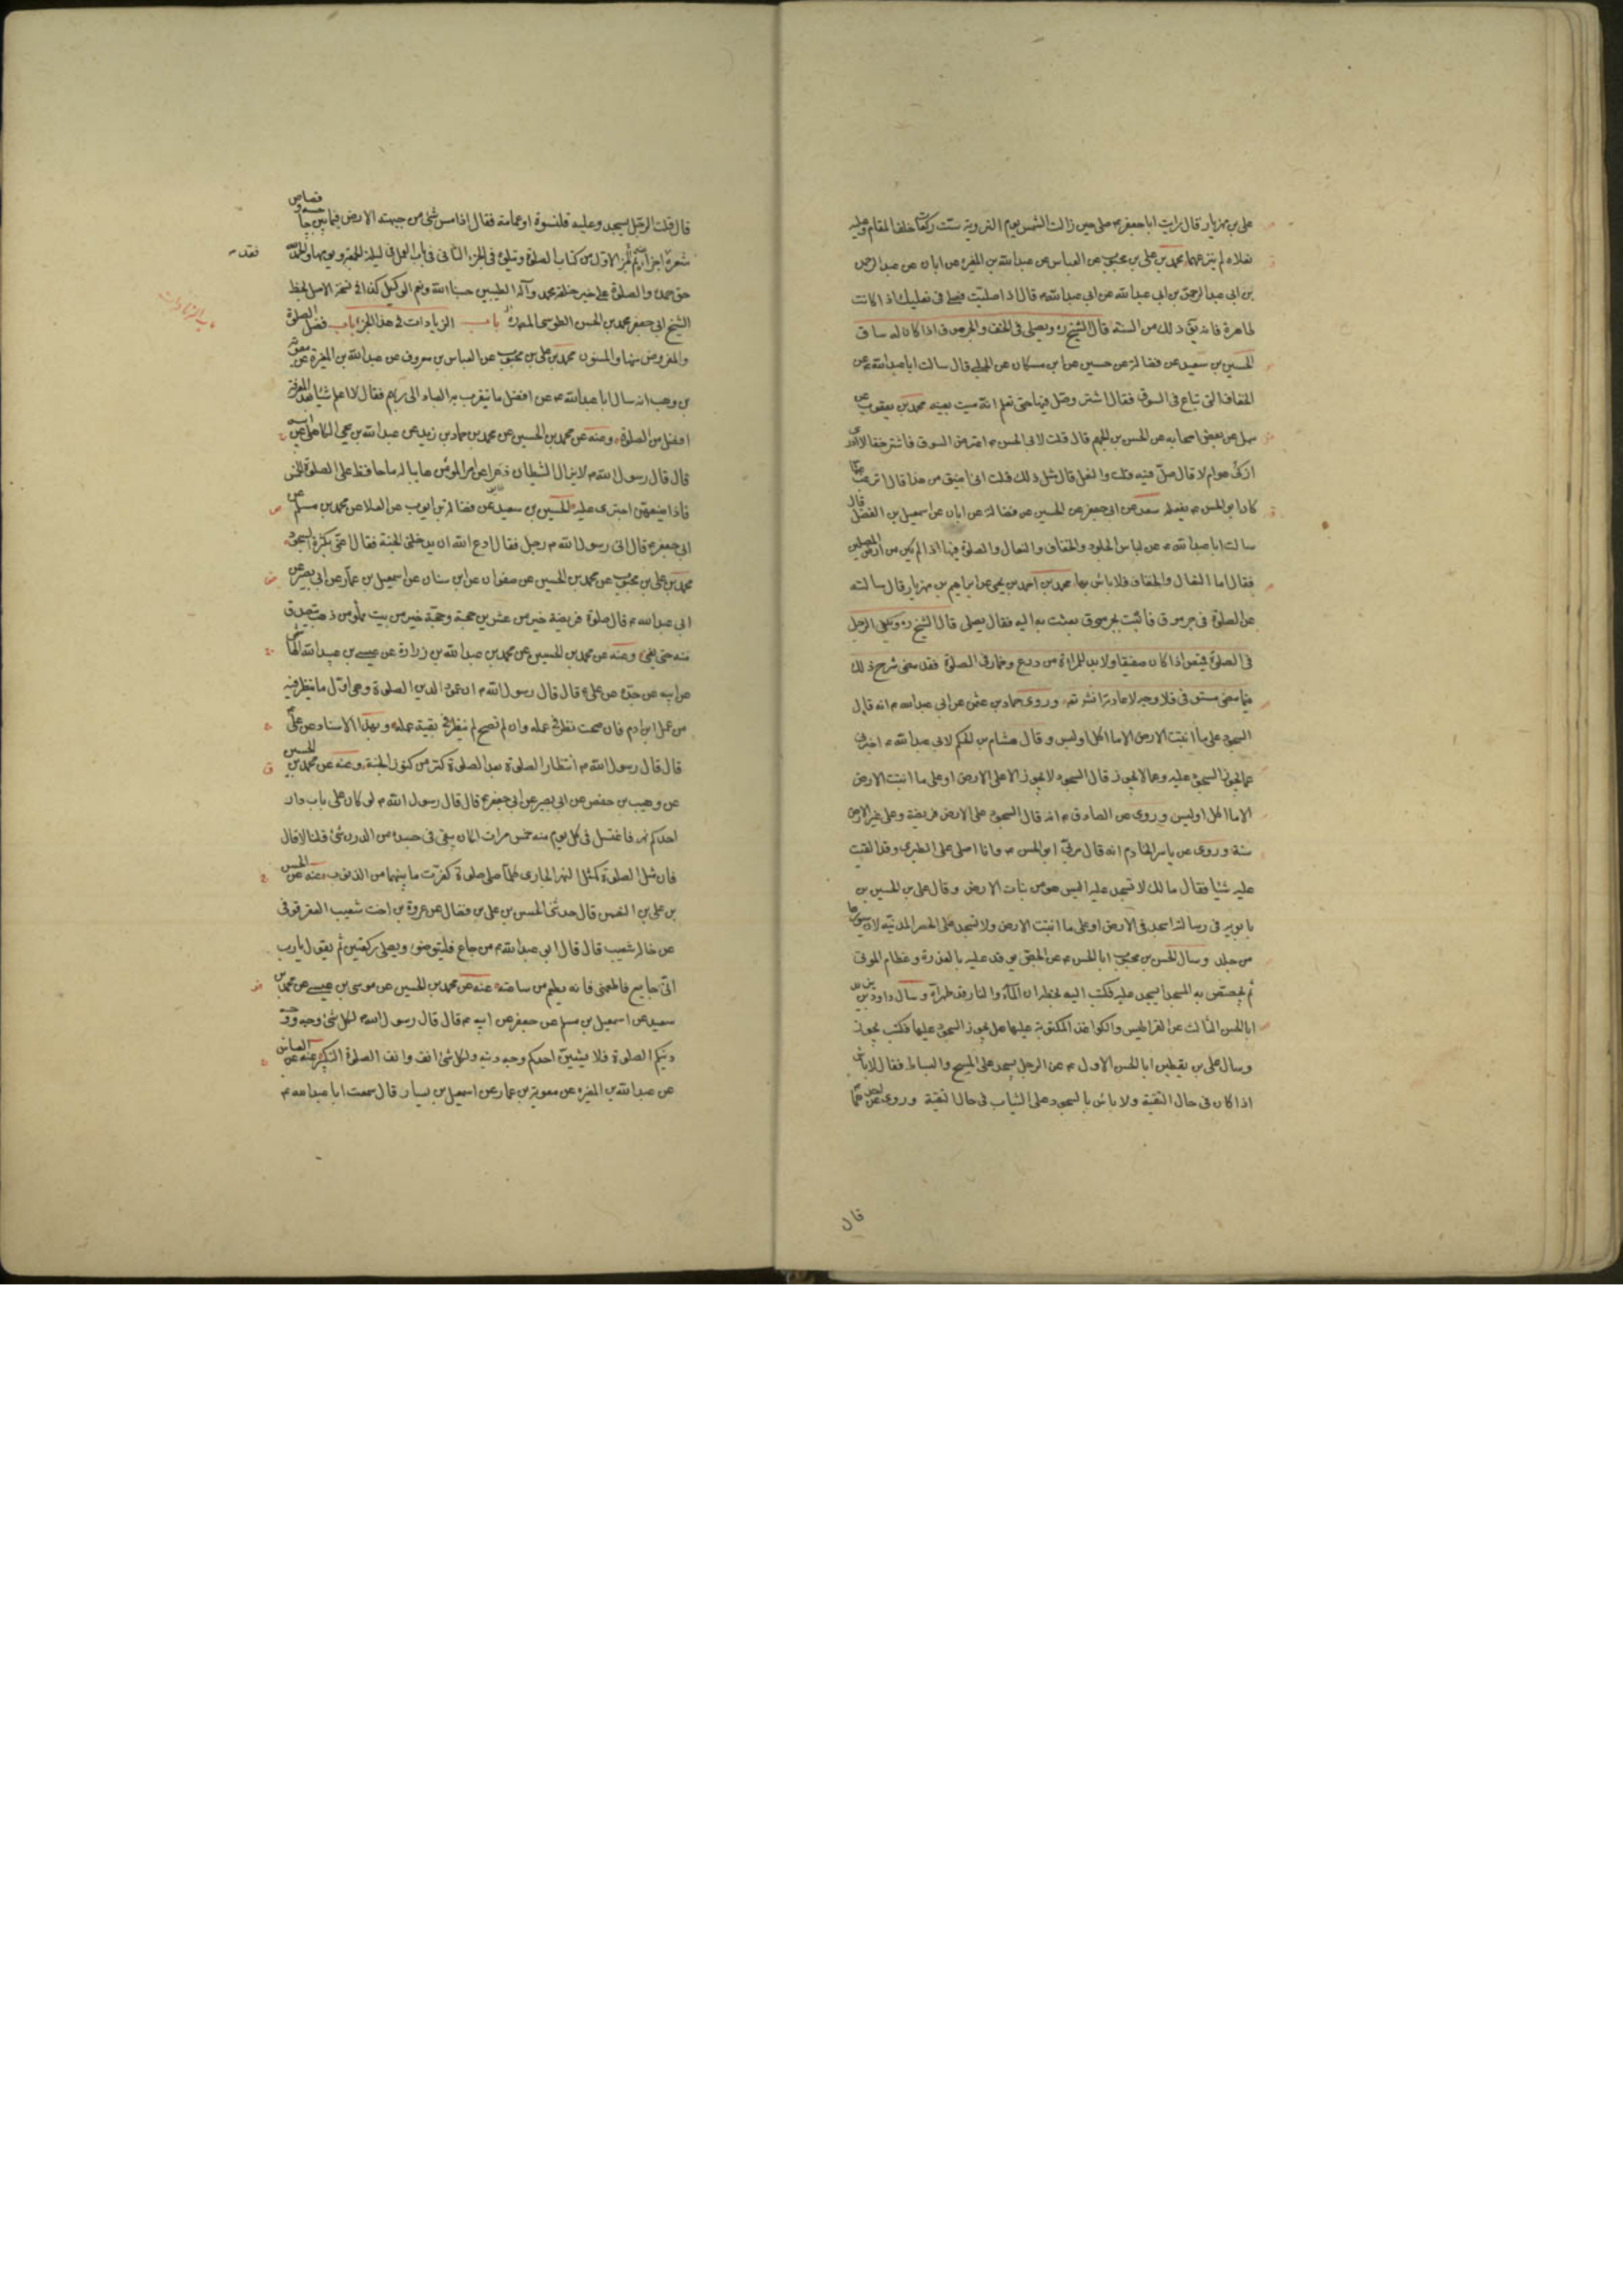 علي بن مهزيار قال رايت ابا جعفر ع صلى حين زالت الشمس يوم التروية ست ركعات خلف المقام وعليه
نعلاه لم ينزعهما محمد بن علي بن محبوب عن العباس عن عبدالله بن المغيره عن ابان عن عبدالرحمن
بن ابي عبدالرحمن بن ابي عبدالله عن ابي عبدالله ع قال اذا صليت فصل في نعليك اذا كانت
طاهرة فانه يق ذلك من السنة قال الشيخ ره ويصلى في الخف والجرموق اذا كان له ساق
الحسين بن سعيد عن فضالة عن حسين عن ابن مسكان عن الحلبي قال سالت ابا عبدالله ع عن
الخفاف التي تباع في السوق فقال اشتر وصل فيها حتى تعلم انه ميت بعينه محمد بن يعقوب عن
سهل عن بعض اصحابه عن الحسن بن الجهم قال قلت لابي الحسن ع اعترض السوق فاشتر خفا لا ادري
اذكى هو ام لا قال صل فيه قلت والنعل قال مثل ذلك قلت اني اضيق من هذا قال اترغب عما
كان ابو الحسن ع يفعله سعد عن ابي جعفر عن الحسين عن فضالة عن ابان عن اسمعيل بن الفضل قال
سالت ابا عبدالله ع عن لباس الجلود والخفاف والنعال والصلوة فيها اذا لم يكن من ارض المصلين
فقال اما النعال والخفاف فلا باس بها محمد بن احمد بن يحيى عن ابراهيم بن مهزيار قال سالته
عن الصلوة في جرموق فاتيت بجرموق بعثت به اليه فقال يصلى قال الشيخ ره ويكفي الرجل
في الصلوة قميص اذا كان صفيقا ولابد للمراة من درع وخمار في الصلوة فقد مضى شرح ذلك
فيما مضى مستوفى فلا وجه لاعادته انش تعه وروى حماد بن عثمن عن ابي عبدالله ع انه قال
السجود على ما انبتت الارض الا ما اكل او لبس وقال هشام بن الحكم لابي عبدالله ع اخبرني
عما يجوز السجود عليه وعما لا يجوز قال السجود لا يجوز الا على الارض او على ما انبتت الارض
الا ما اكل او لبس وروى عن الصادق ع انه قال السجود على الارض فريضة وعلى غير الارض
سنة وروى عن ياسر الخادم انه قال مر بي ابو الحسن ع وانا اصلي على الطبري وقد القيت
عليه شيئا فقال مالك لا تسجد عليه اليس هو من نبات الارض وقال علي بن الحسين بن
بابويه في رسالته اسجد في الارض او على ما انبتت الارض ولا تسجد على الحصر المدنية لان سيورها
من جلد وسال الحسن بن محبوب ابا الحسن ع عن الجص يوقد عليه بالعذرة وعظام الموتى
ثم يجصص به المسجد ايسجد عليه فكتب اليه بخطه ان الماء والنار قد طهراه وسال داود بن
ابا الحسن الثالث عن القراطيس والكواغذ المكتوبة عليها هل يجوز السجود عليها فكتب يجوز
وسال علي بن يقطين ابا الحسن الاول ع عن الرجل يسجد على المسح والبساط فقال لا باس
اذا كان في حال التقية ولا باس بالسجود على الثياب في حال التقية وروى عن
قال
قال قلت الرجل يسجد وعليه قلنسوة او عمامة فقال اذا مس شيء من جبهته الارض فيما بين حاجبيه وقصاص
شعره اجزأه تم الجزء الاول من كتاب الصلوة ويتلوه في الجزء الثاني في باب العمل في ليلة الجمعة ويومها والحمد لله
حق حمده والصلوة على خير خلقه محمد وآله الطيبين حسبنا الله ونعم الوكيل كذا في نسخة الاصل بخط
الشيخ ابي جعفر محمد بن الحسن الطوسي المصدرة باب الزيادات في هذا الجزء باب فضل الصلوة
والمفروض منها والمسنون محمد بن علي بن محبوب عن العباس بن معروف عن عبدالله بن المغيرة عن معوية
بن وهب انه سال ابا عبدالله ع عن افضل ما يتقرب به العباد الى ربهم فقال لا اعلم شيئا بعد المعرفة
افضل من الصلوة وعنه عن محمد بن الحسين عن محمد بن حماد بن زيد عن عبدالله بن يحيى الكاهلي عن
قال قال رسول الله ص لا يزال الشيطان ذعرا عن امر المؤمن هايبا له ما حافظ على الصلوة الخمس
فاذا ضيعهن اجترى عليه الحسين بن سعيد عن فضالة بن ايوب عن العلا عن محمد بن مسلم عن
ابي جعفر ع قال اتى رسول الله ص رجل فقال ادع الله ان يدخلني الجنة فقال اعني بكثرة السجود
محمد بن علي بن محبوب عن محمد بن الحسين عن صفوان عن ابن سنان عن اسمعيل بن عمار عن ابي بصير عن
ابي عبدالله ع قال صلوة فريضة خير من عشرين حجة وحجة خير من بيت مملو من ذهب يتصدق
منه حتى يفنى وعنه عن محمد بن الحسين عن محمد بن عبدالله بن زرارة عن عيسى بن عبدالله الهاشمي
عن ابيه عن جده عن علي ع قال قال رسول الله ص ان عمود الدين الصلوة وهي اول ما ينظر فيه
من عمل ابن ادم فان صحت نظر في عمله وان لم تصح لم ينظر في بقية عمله وبهذا الاسناد عن علي ع
قال قال رسول الله ص انتظار الصلوة بعد الصلوة كنز من كنوز الجنة وعنه عن محمد بن الحسين
عن وهيب بن حفص عن ابي بصير عن ابي جعفر ع قال قال رسول الله ص لو كان على باب دار
احدكم نهر فاغتسل في كل يوم منه خمس مرات اكان يبقى في جسده من الدرن شيء قلنا لا قال
فان مثل الصلوة كمثل النهر الجاري كلما صلى صلوة كفرت ما بينهما من الذنوب وعنه عن الحسن
بن علي بن النعمن قال حدثني الحسن بن علي بن فضال عن عروة بن اخت شعيب العقرقوفي
عن خاله شعيب قال قال ابو عبدالله ع من جاع فليتوضوء ويصلي ركعتين ثم يقول يا رب
اني جايع فاطعمني فانه يطعم من ساعته عنه عن محمد بن الحسين عن موسى بن عيسى عن محمد بن
سعيد عن اسمعيل بن مسلم عن جعفر عن ابيه ع قال قال رسول الله ص لكل شيء وجه ووجه
دينكم الصلوة فلا يشينن احدكم وجه دينه ولكل شيء انف وانف الصلوة التكبير عنه عن العباس
عن عبدالله بن المغيره عن معوية بن عمار عن اسمعيل بن يسار قال سمعت ابا عبدالله ع